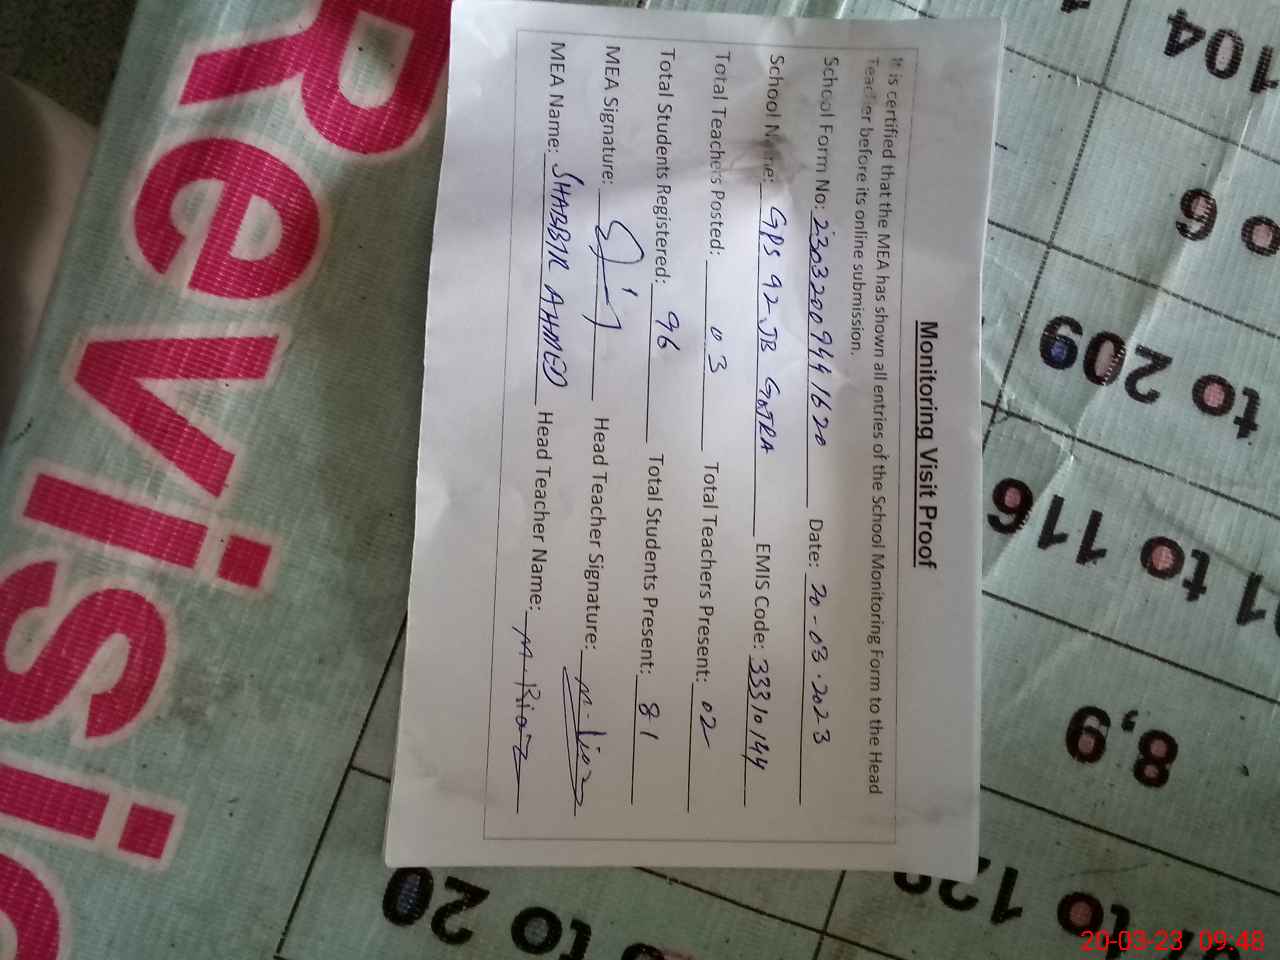 Monitoring Visit Proof
It is certified that the MEA has shown all entries of the School Monitoring Form to the Head
Teacher before its online submission.
School Form No: 2303200944 1620 Date: 20-03-2023
School Name: GPS 92 JB GATRA EMIS Code: 33310144
Total Teachers Posted: 03 Total Teachers Present: 02
Total Students Registered: 96 Total Students Present: 81
MEA Signature: Head Teacher Signature: M. Riaz
MEA Name: SHABBIR AHMED Head Teacher Name: M. Riaz
Revisi
104
o 6
to 209
to 116
8,9
to 20
20-03-23 09:48